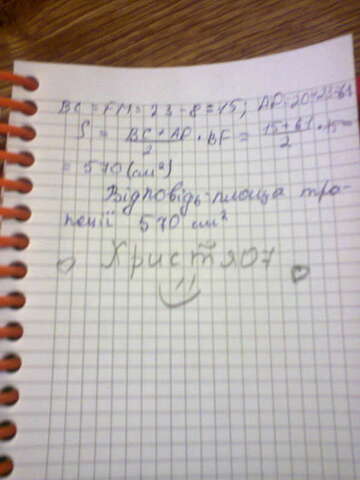 BC = FM = 23 - 8 = 15; AD = 20+23+
S = BC + AD / 2 · BF = 15 + 61 / 2 · 15 =
= 570 (см²)
Відповідь: площа тра-
пеції 570 см²
Христя07